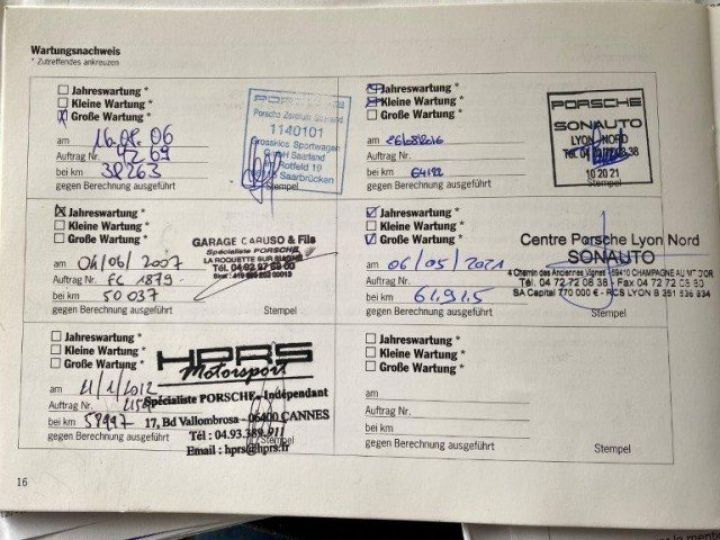 Wartungsnachweis
* Zutreffendes ankreuzen
Jahreswartung *
Kleine Wartung *
Große Wartung *
am 16.01.06
Auftrag Nr. 4269
bei km 38263
gegen Berechnung ausgeführt
Porsche Zentrum Saarland
1140101
Sportwagen
GmbH Saarland
Rotfeld 19
Saarbrücken
Stempel
Jahreswartung *
Kleine Wartung *
Große Wartung *
am 26/08/2016
Auftrag Nr.
bei km 64192
gegen Berechnung ausgeführt
PORSCHE
SONAUTO
LYON NORD
Tél. 04 72 72 08 38
10 20 21
Stempel
Jahreswartung *
Kleine Wartung *
Große Wartung *
am 04/06/2007
Auftrag Nr. FC 1879
bei km 50 037
gegen Berechnung ausgeführt
GARAGE CARUSO & Fils
Spécialiste PORSCHE
LA ROQUETTE SUR SIAGNE
Tél. 04 92 97 69 00
Stempel
Jahreswartung *
Kleine Wartung *
Große Wartung *
am 06/05/2021
Auftrag Nr.
bei km 61.915
gegen Berechnung ausgeführt
Centre Porsche Lyon Nord
SONAUTO
4 Chemin des Anciennes Vignes - 69410 CHAMPAGNE AU MT D'OR
Tél. 04 72 72 08 38 - Fax 04 72 72 08 80
SA Capital 770 000 € - RCS LYON B
Stempel
Jahreswartung *
Kleine Wartung *
Große Wartung *
am 11/1/2012
Auftrag Nr.
bei km 58997
gegen Berechnung ausgeführt
HPRS
Motorsport
Spécialiste PORSCHE - Indépendant
17, Bd Vallombrosa - 06400 CANNES
Tél : 04.93.389.911
Email : hprs@hprs.fr
Stempel
Jahreswartung *
Kleine Wartung *
Große Wartung *
am
Auftrag Nr.
bei km
gegen Berechnung ausgeführt
Stempel
16